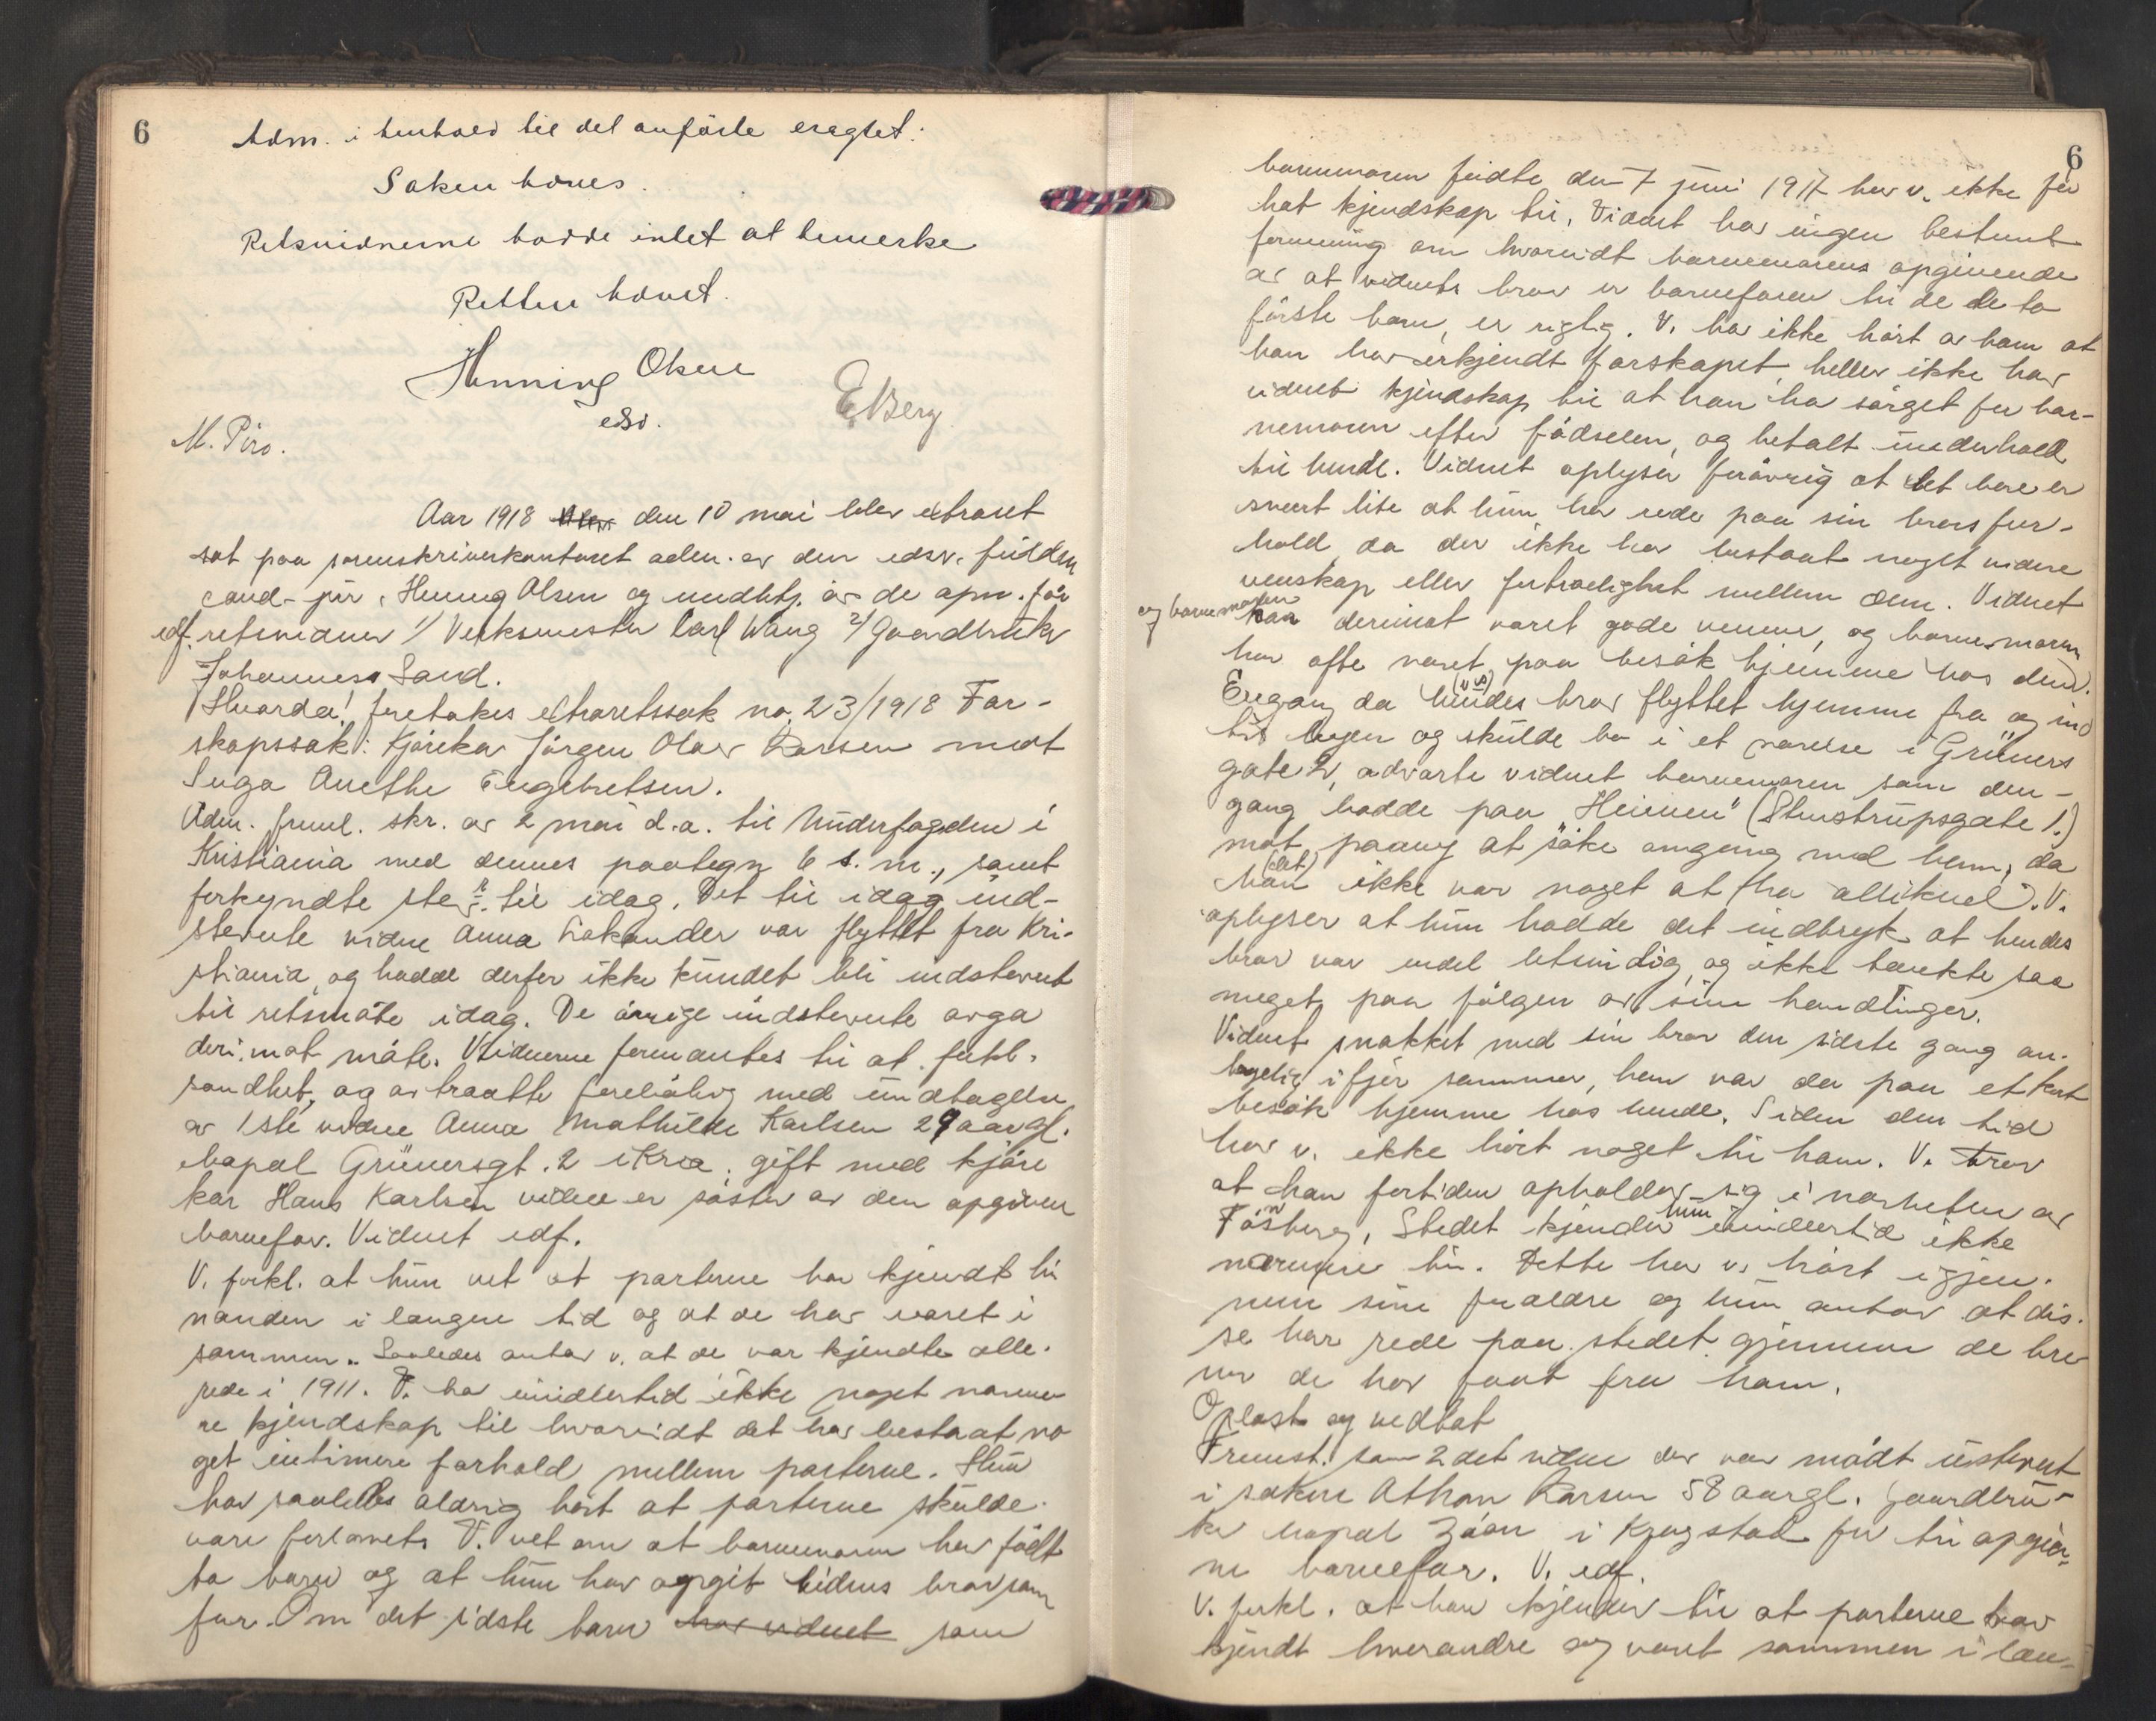 6
Adm. i henhold til det anførte eragtet:
Saken hæves.
Retsvidnerne hadde intet at bemerke
Retten hævet.
Henning Olsen
edsv.
E Berg
M. Piro.
Aar 1918 den 10 mai blev extraret
sat paa sorenskriverkontoret adm. av den edsv. fuldm
cand. jur. Henning Olsen og undertj. av de opn. før
edf. retsvidner 1/ Verksmester Carl Wang 2/ Gaardbruker
Johannes Sand.
Hvorda! foretokes extraretssak no. 23/1918 Far-
skapssak: Kjørekar Jørgen Olav Larsen mot
Inga Anethe Engebretsen.
Adm. freml. skr. av 2 mai d.a. til Underfogden i
Kristiania med dennes paategn 6 s. m., samt
forkyndte stev. til idag. Det til idag ind-
stevnte vidne Anna Lakander var flyttet fra Kri-
stiania, og hadde derfor ikke kundet bli indstevnt
til retsmøte idag. De øvrige indstevnte avga
deri.mot møte. Vidnerne formantes til at forkl.
sandhet, og avtraatte foreløbig med undtagelse
av 1ste vidne Anna Mathilde Karlsen 29 aar gl.
bopæl Grünersgt. 2 i Kra. gift med kjøre
kar Hans Karlsen vidne er søster av den opgivne
barnefar. Vidnet edf.
V. forkl. at hun vet at parterne har kjendt hi
nanden i længere tid og at de har været i
sammen. Saaledes antar v. at de var kjendte alle-
rede i 1911. V. har imidlertid ikke noget nærme
re kjendskap til hvorvidt det har bestaat no
get intimere forhold mellem parterne. Hun
har saaledes aldrig hørt at parterne skulde
være forlovet. V. vet om at barnemoren har født
to barn og at hun har opgit vidnes bror som
far. Om det sidste barn har vidnet som
6
barnemoren fødte den 7 juni 1917 har v. ikke før
hat kjendskap til. Vidnet har ingen bestemt
formening om hvorvidt barnemorens opgivende
av at vidnets bror er barnefaren til de to
første barn, er rigtig. V. har ikke hørt av ham at
han har erkjendt farskapet, heller ikke har
vidnet kjendskap til at han ha sørget for bar-
nemoren efter fødselen, og betalt underhold
til hende. Vidnet oplyser forøvrig at det bare er
svært lite at hun har rede paa sin brors for-
hold, da der ikke har bestaat noget videre
venskap eller fortrolighet mellem dem. Vidnet
og barnemoren har derimot været gode venner, og barnemoren
har ofte været paa besøk hjemme hos dem.
Engang da hendes (v s) bror flyttet hjemme fra og ind
til byen og skulde bo i et værelse i Grüners
gate 2, advarte vidnet barnemoren som den-
gang bodde paa "Heimen" (Stenstrupsgate 1.)
mot paany at søke omgang med ham, da
han (det) ikke var noget at tra allikevel). V.
oplyser at hun hadde det indtryk at hendes
bror var endel letsindig, og ikke tænkte saa
meget paa følgen av sine handlinger.
Vidnet snakket med sin bror den sidste gang an-
tagelig ifjor sommer, han var da paa et kort
besøk hjemme hos hende. Siden den tid
har v. ikke hørt noget til ham. V. tror
at han fortiden opholder sig i nærheten av
Tønsberg, Stedet kjender hun imidlertid ikke
nærmere til. Dette har v. hørt igjen-
nem sine forældre og hun antar at dis-
se har rede paa stedet gjennem de bre
ver de har faat fra ham.
Oplæst og vedtat
Fremst. som 2det vidne der var mødt ustevnt
i saken Athan Larsen 58 aar gl. gaardbru-
ker bopæl i Krogstad far til opgiv-
ne barnefar. V. edf.
V. forkl. at han kjender til at parterne har
kjendt hverandre og været sammen i læn-